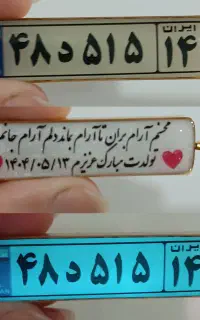 ایران
۴۸ د ۵۱۵ ۱۴
محسنم آرام بران تا آرام بماند دلم آرام جانم
تولدت مبارک عزیزم ۱۴۰۴/۰۵/۱۳
ایران
۴۸ د ۵۱۵ ۱۴